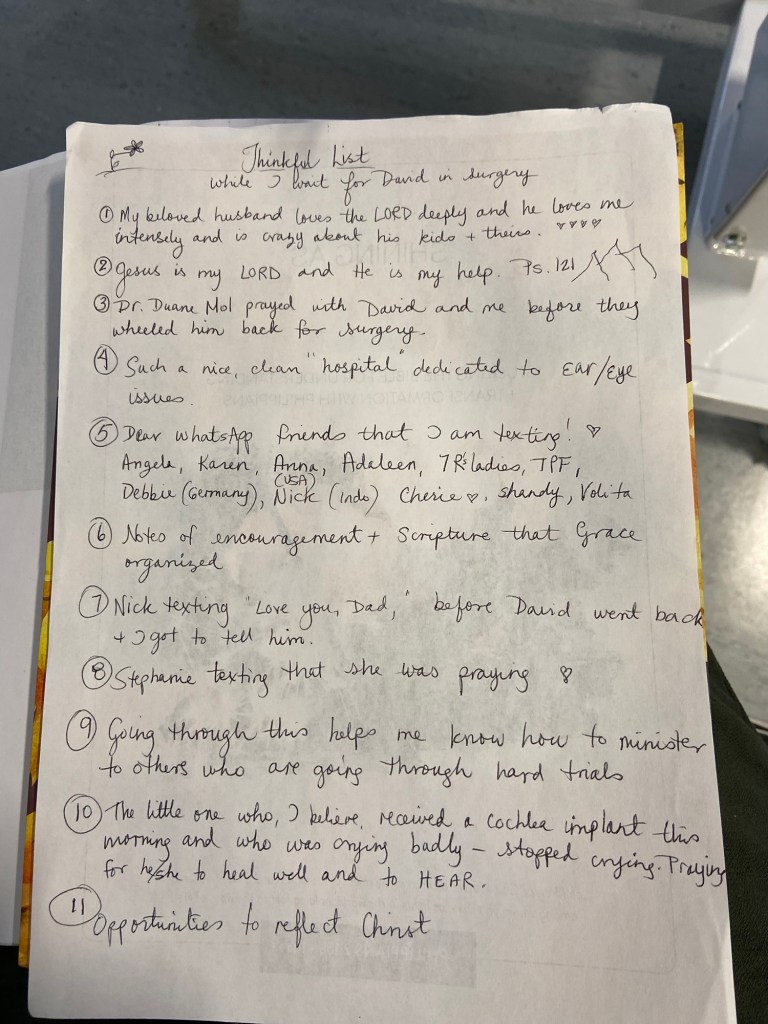 Thinkful List
while I wait for David in surgery
① My beloved husband loves the LORD deeply and he loves me
intensely and is crazy about his kids + theirs. ♡♡♡♡
② Jesus is my LORD and He is my help. Ps. 121
③ Dr. Duane Mol prayed with David and me before they
wheeled him back for surgery.
④ Such a nice, clean "hospital" dedicated to Ear/Eye
issues.
⑤ Dear WhatsApp friends that I am texting! ♡
Angela, Karen, Anna, Adaleen, 7 R's ladies, TPF,
(USA)
Debbie (Germany), Nick (Indo) Cherie ♡, Shandy, Volita
⑥ Notes of encouragement + Scripture that Grace
organized
⑦ Nick texting "Love you, Dad," before David went back
+ I got to tell him.
⑧ Stephanie texting that she was praying ♡
⑨ Going through this helps me know how to minister
to others who are going through hard trials
⑩ The little one who, I believe, received a cochlea implant this
morning and who was crying badly – stopped crying. Praying
for he/she to heal well and to HEAR.
⑪ Opportunities to reflect Christ